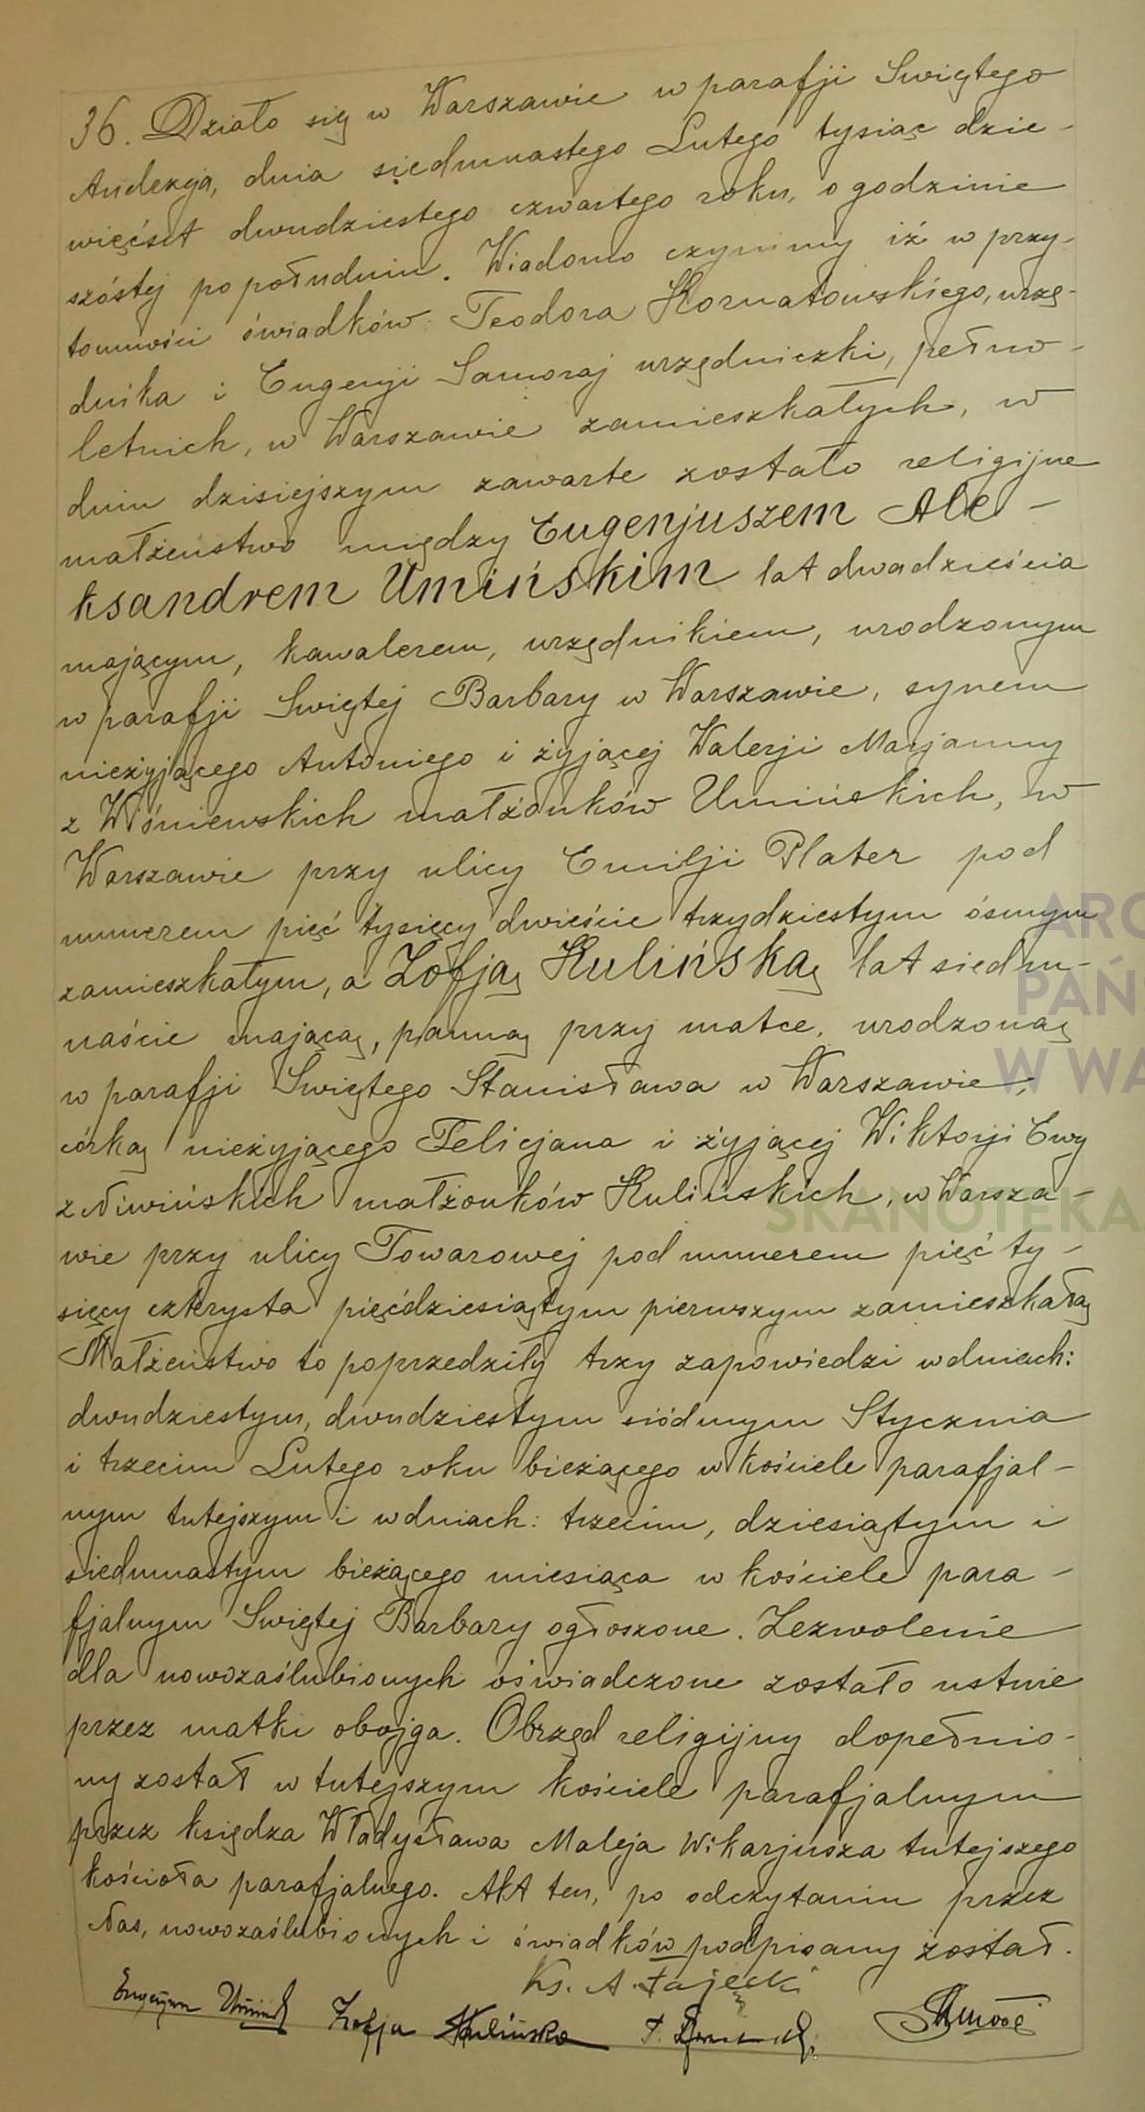 36. Działo się w Warszawie w parafji Swiętego
Andrzeja, dnia siedmnastego Lutego tysiąc dzie-
więćset dwudziestego czwartego roku, o godzinie
szóstej po południu. Wiadomo czynimy iż w przy-
tomności świadków: Teodora Kornatowskiego, urzę-
dnika i Eugenji Samoraj urzędniczki, pełno-
letnich, w Warszawie zamieszkałych, w
dniu dzisiejszym zawarte zostało religijne
małżeństwo między Eugenjuszem Ale-
ksandrem Umińskim lat dwadzieścia
mającym, kawalerem, urzędnikiem, urodzonym
w parafji Swiętej Barbary w Warszawie, synem
nieżyjącego Antoniego i żyjącej Walerji Marjanny
z Wiśniewskich małżonków Umińskich, w
Warszawie przy ulicy Emilji Plater pod
numerem pięć tysięcy dwieście trzydziestym ósmym
zamieszkałym, a Zofją Kulińską lat siedm-
naście mającą, panną przy matce, urodzoną
w parafji Swiętego Stanisława w Warszawie,
córką nieżyjącego Felicjana i żyjącej Wiktorji Ewy
z Niwińskich małżonków Kulińskich, w Warsza-
wie przy ulicy Towarowej pod numerem pięć ty-
sięcy czterysta pięćdziesiątym pierwszym zamieszkałą
Małżeństwo to poprzedziły trzy zapowiedzi w dniach:
dwudziestym, dwudziestym siódmym Stycznia
i trzecim Lutego roku bieżącego w kościele parafjal-
nym tutejszym i w dniach: trzecim, dziesiątym i
siedmnastym bieżącego miesiąca w kościele para-
fjalnym Swiętej Barbary ogłoszone. Zezwolenie
dla nowozaślubionych oświadczone zostało ustnie
przez matki obojga. Obrzęd religijny dopełnio-
ny został w tutejszym kościele parafjalnym
przez księdza Władysława Maleja Wikarjusza tutejszego
kościoła parafjalnego. Akt ten, po odczytaniu przez
Nas, nowozaślubionych i świadków podpisany został.
Ks. A. Fajęcki
Eugenjusz Umiński Zofja Kulińska
ARC
PAŃ
W WA
SKANOTEKA